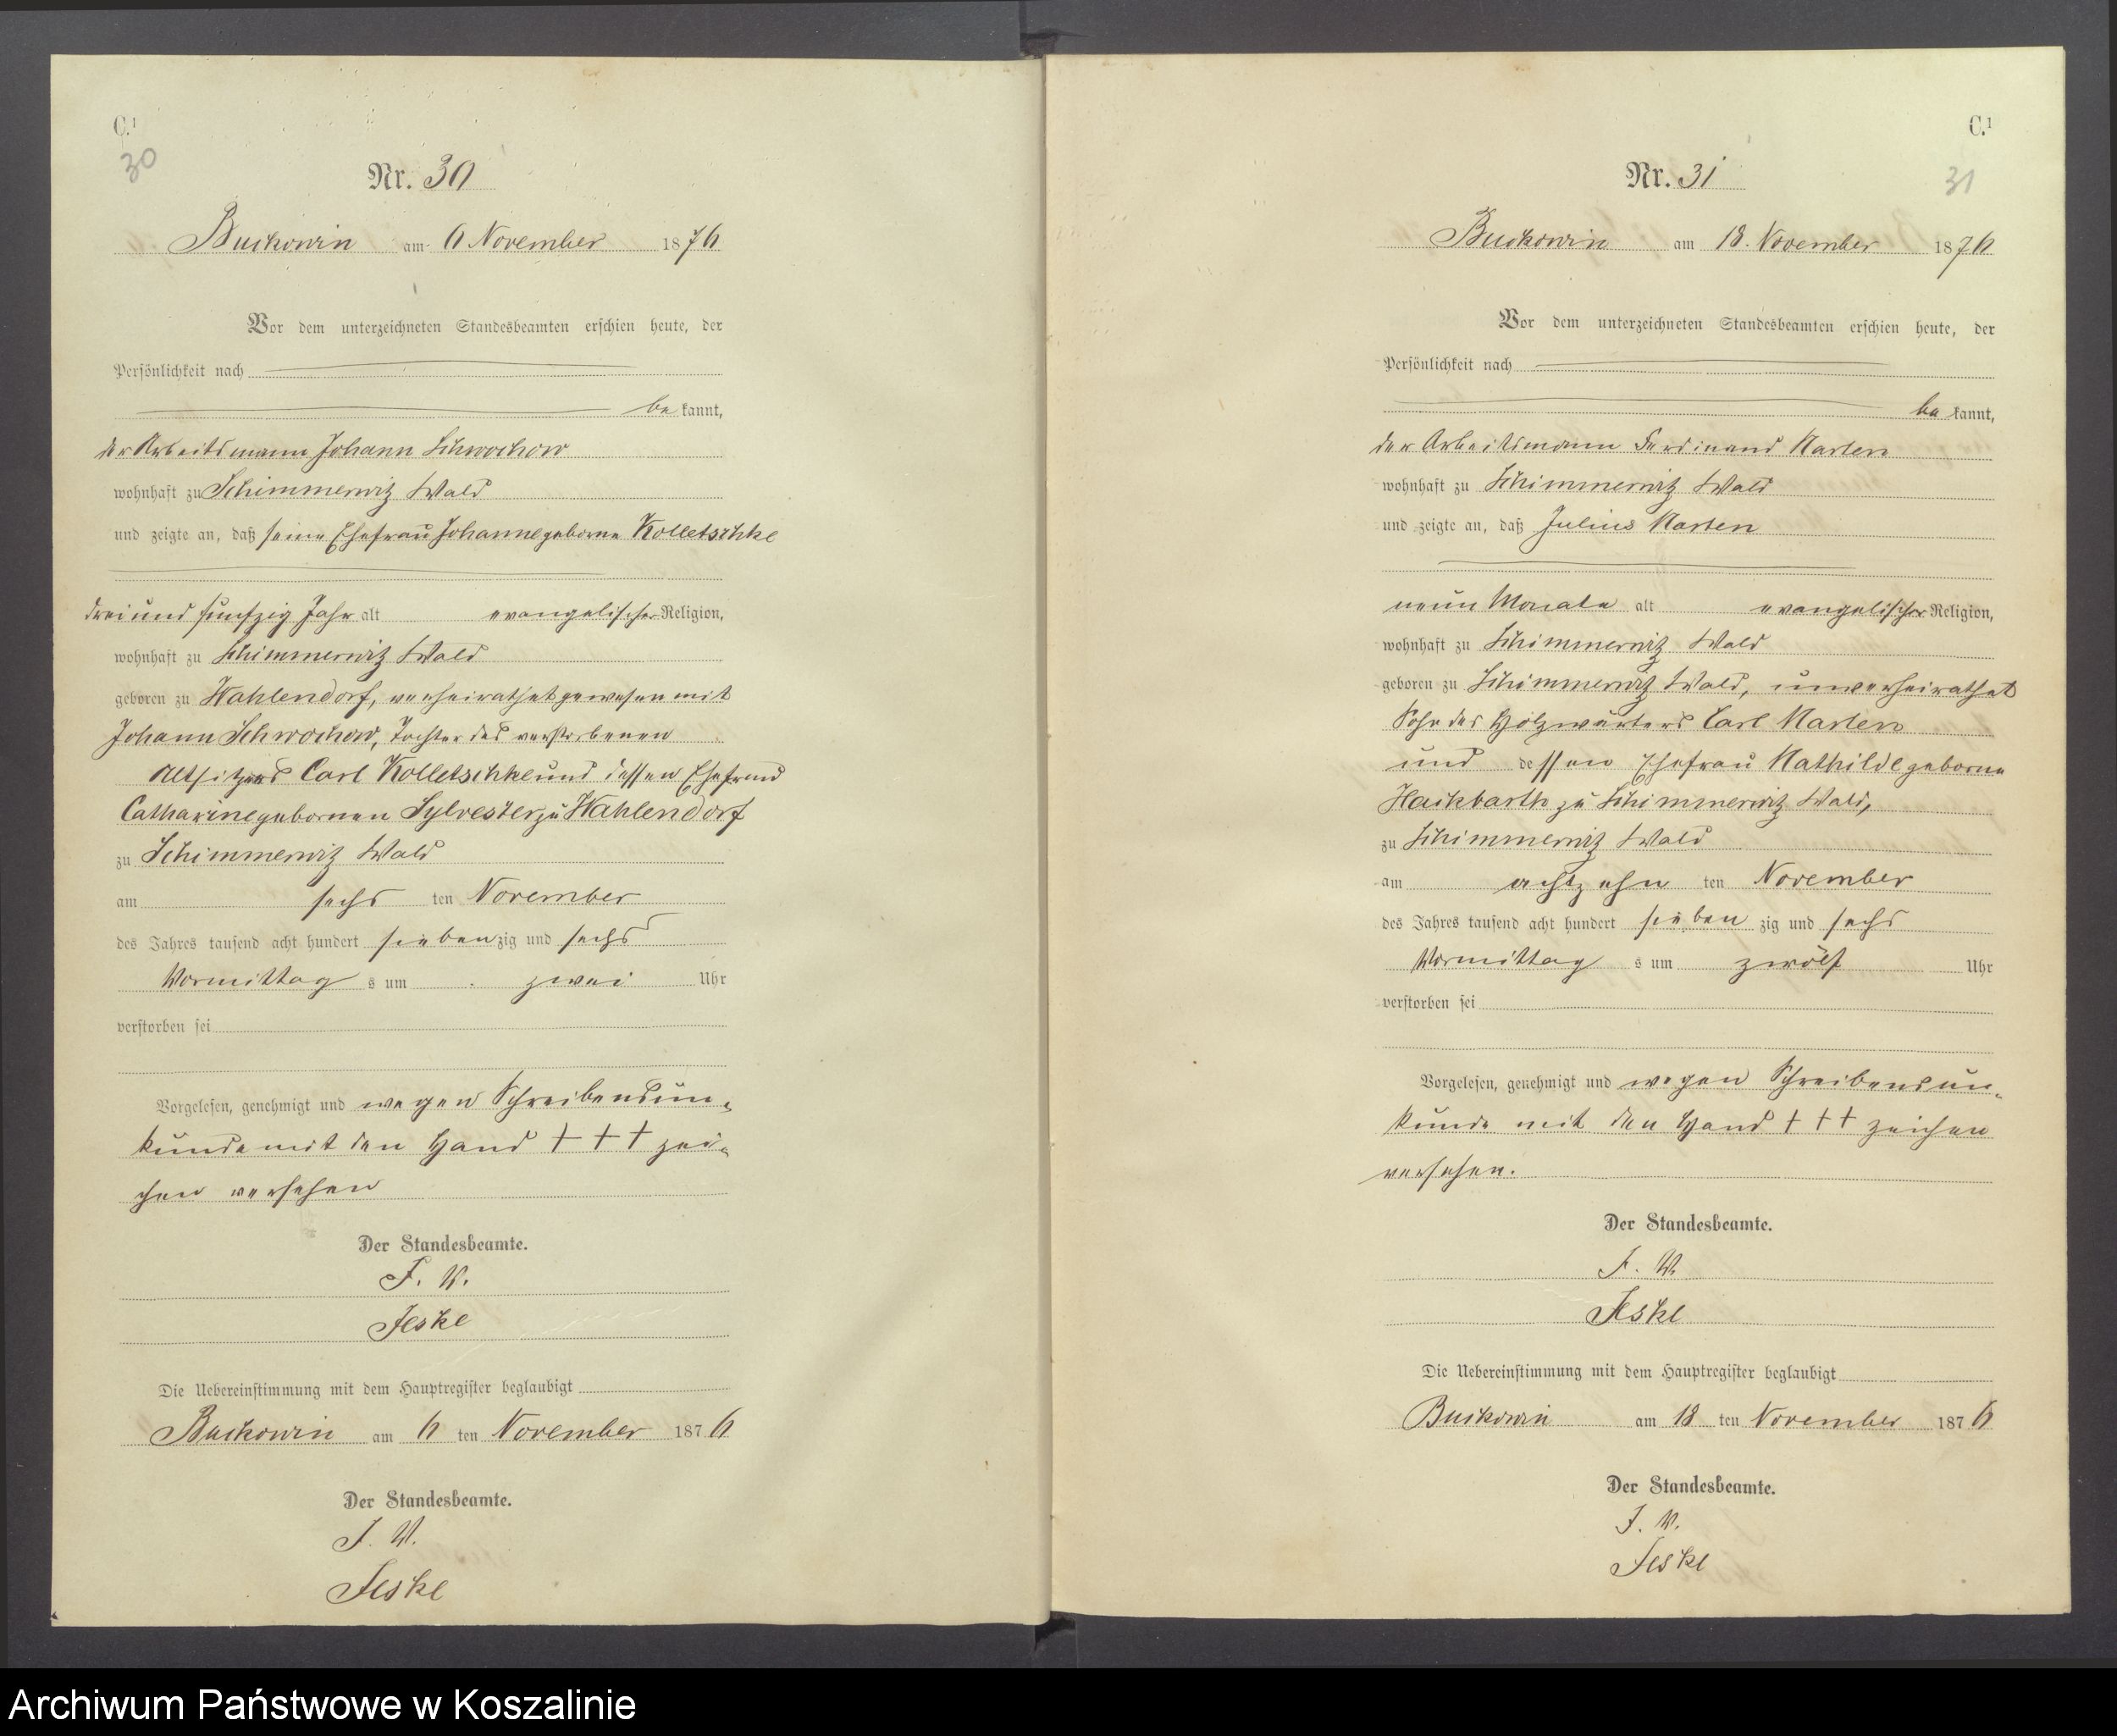 C.¹
30
Nr. 30
Buckowin am 6 November 1876
Vor dem unterzeichneten Standesbeamten erschien heute, der
Persönlichkeit nach
be kannt,
der Arbeitsmann Johann Schwochow
wohnhaft zu Schimmerwitz Wald
und zeigte an, daß seine Ehefrau Johanne geborne Kolletschke
drei und fünfzig Jahr alt evangelischer Religion,
wohnhaft zu Schimmerwitz Wald
geboren zu Wahlendorf, verheirathet gewesen mit
Johann Schwochow, Tochter des verstorbenen
Altsitzers Carl Kolletschke und dessen Ehefrau
Catharine gebornen Sylvester zu Wahlendorf
zu Schimmerwitz Wald
am sechs ten November
des Jahres tausend acht hundert sieben zig und sechs
Vormittag s um zwei Uhr
verstorben sei
Vorgelesen, genehmigt und wegen Schreibensun-
kunde mit den Hand + + + zei-
chen versehen
Der Standesbeamte.
J. V.
Jeske
Die Uebereinstimmung mit dem Hauptregister beglaubigt
Buckowin am 6 ten November 1876
Der Standesbeamte.
J. V.
Jeske
C.¹
31
Nr. 31
Buckowin am 18. November 1876
Vor dem unterzeichneten Standesbeamten erschien heute, der
Persönlichkeit nach
be kannt,
der Arbeitsmann Ferdinand Marten
wohnhaft zu Schimmerwitz Wald
und zeigte an, daß Julius Marten
neun Monate alt evangelischer Religion,
wohnhaft zu Schimmerwitz Wald
geboren zu Schimmerwitz Wald, unverheirathet
Sohn des Holzwärters Carl Marten
und dessen Ehefrau Mathilde geborne
Hackbarth zu Schimmerwitz Wald,
zu Schimmerwitz Wald
am achtzehn ten November
des Jahres tausend acht hundert sieben zig und sechs
Vormittag s um zwölf Uhr
verstorben sei
Vorgelesen, genehmigt und wegen Schreibensun-
kunde mit den Hand + + + zeichen
versehen.
Der Standesbeamte.
J. V.
Jeske
Die Uebereinstimmung mit dem Hauptregister beglaubigt
Buckowin am 18 ten November 1876
Der Standesbeamte.
J. V.
Jeske
Archiwum Państwowe w Koszalinie